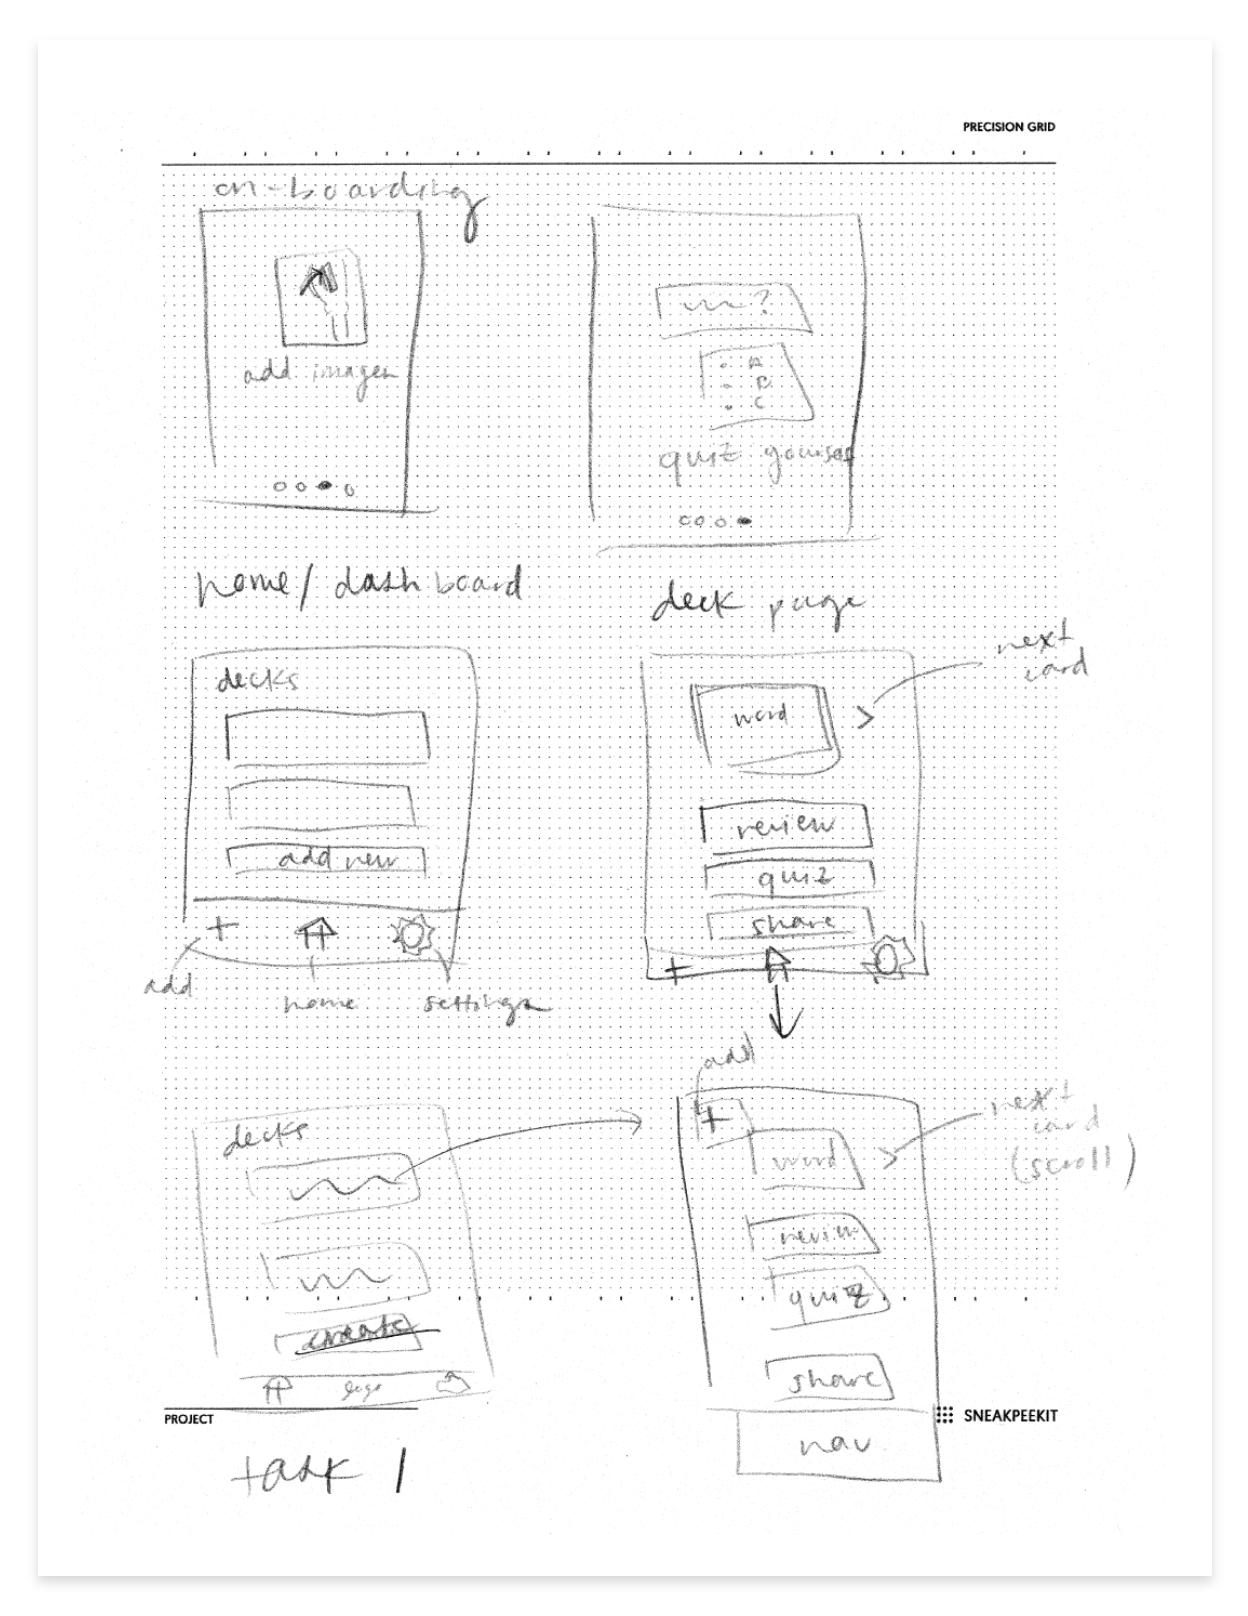 PRECISION GRID
on-boarding
add images
~~~?
A
B
C
quiz yourself
home/dashboard
decks
add new
add
home
settings
deck page
word
>
next
card
review
quiz
share
decks
create
add
word
>
next
card
(scroll)
review
quiz
share
nav
PROJECT
SNEAKPEEKIT
task 1